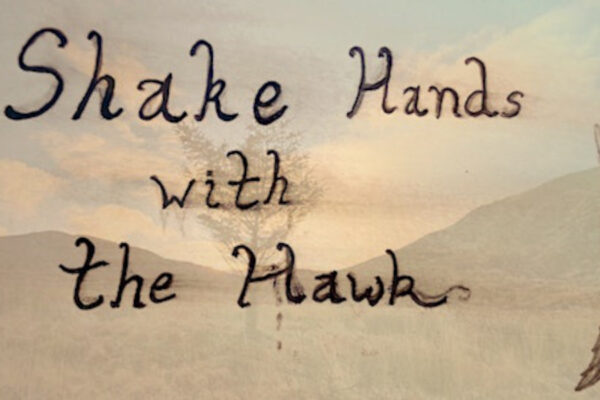 Shake Hands
with
the Hawk